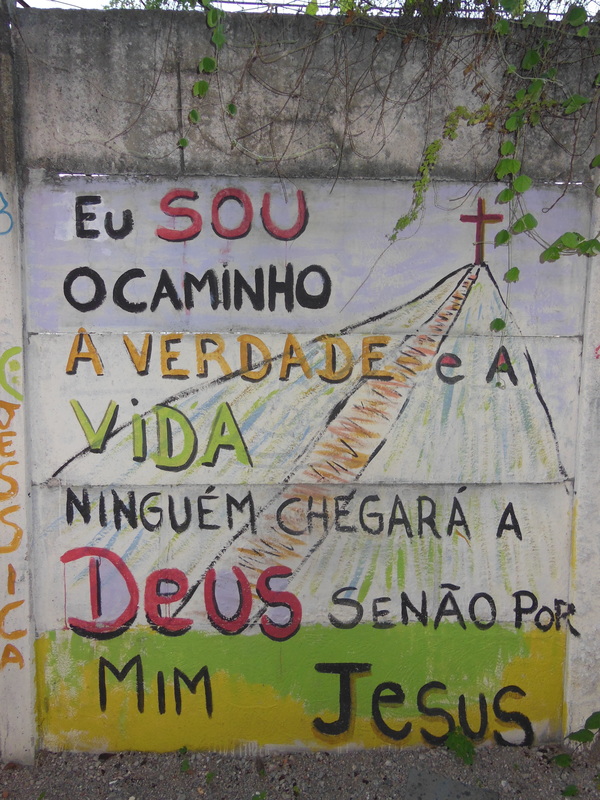 Eu SOU
O CAMINHO
A VERDADE e A
ViDA
NINGUÉM CHEGARÁ A
Deus SENÃO POR
MIM Jesus
JESSICA